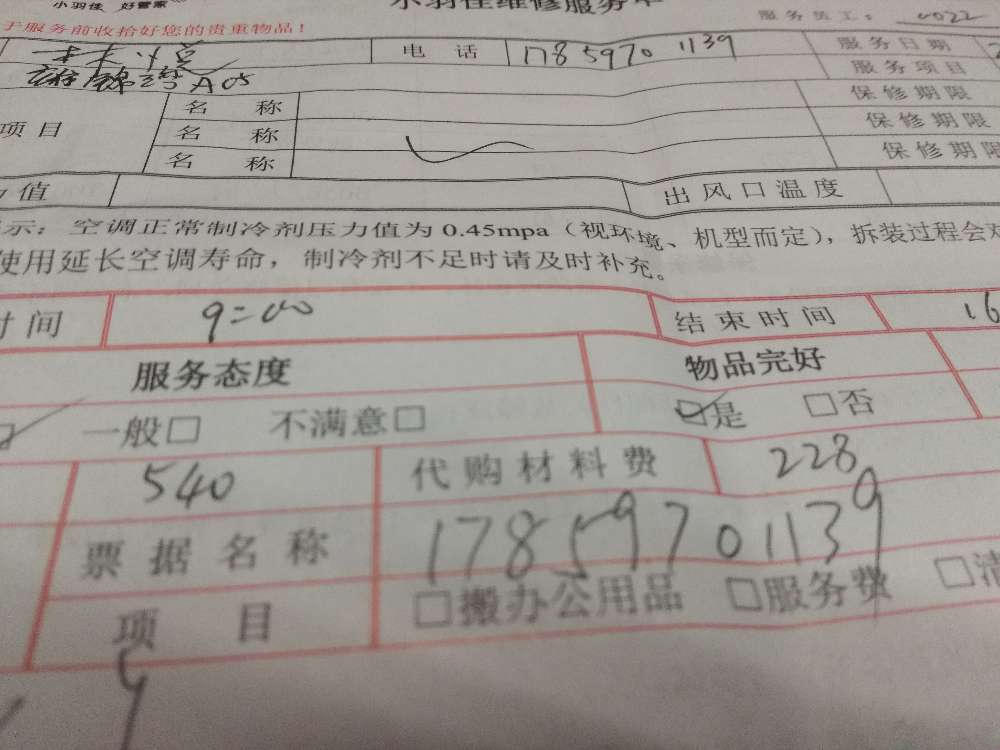 小羽佳 好管家 小羽佳维修服务单 服务员工: 0022
于服务前收拾好您的贵重物品!
电 话 17859701139 服务日期
A05 服务项目
名 称 保修期限
项目 名 称 保修期限
名 称 保修期限
值 出风口温度
示: 空调正常制冷剂压力值为0.45mpa(视环境、机型而定), 拆装过程会对
使用延长空调寿命, 制冷剂不足时请及时补充。
时间 9:00 结束时间 16
服务态度 物品完好
一般□ 不满意□ ☑是 □否
540 代购材料费 228
票据名称 17859701139
项 目 □搬办公用品 □服务费 □清